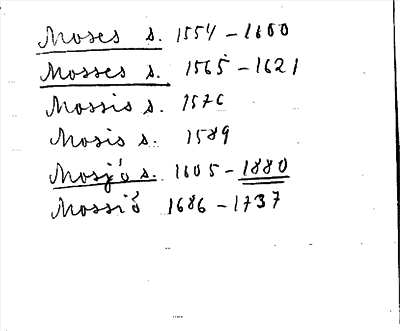 Moses s. 1554 – 1600
Mosses s. 1565 – 1621
Mossis s. 1576
Mosis s. 1589
Mosjö s. 1605 – 1880
Mossiö 1686 – 1737